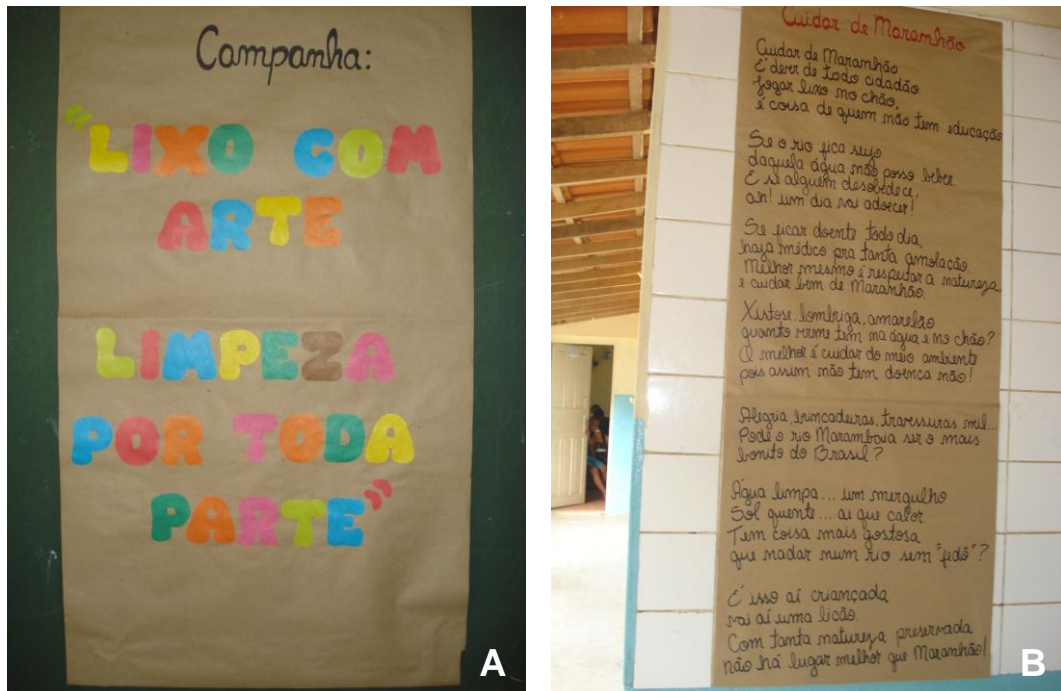 Campanha:
"LIXO COM
ARTE
LIMPEZA
POR TODA
PARTE"
A
Cuidar de Maranhão
Cuidar de Maranhão
É dever de todo cidadão.
Jogar lixo no chão,
é coisa de quem não tem educação
Se o rio fica sujo
daquela água não posso beber.
E se alguém desobedece,
ah! um dia vai adoecer!
Se ficar doente todo dia,
haja médico pra tanta amolação.
Melhor mesmo é respeitar a natureza
e cuidar bem de Maranhão.
Xistose, lombriga, amarelão
quanto verme tem na água e no chão?
O melhor é cuidar do meio ambiente
pois assim não tem doença não!
Alegria, brincadeiras, travessuras mil...
Pode o rio Marambaia ser o mais
bonito do Brasil?
Água limpa... um mergulho
Sol quente... ai que calor
Tem coisa mais gostosa
que nadar num rio sem "fedô"?
É isso aí criançada
vai aí uma lição.
Com tanta natureza preservada
não há lugar melhor que Maranhão!
B